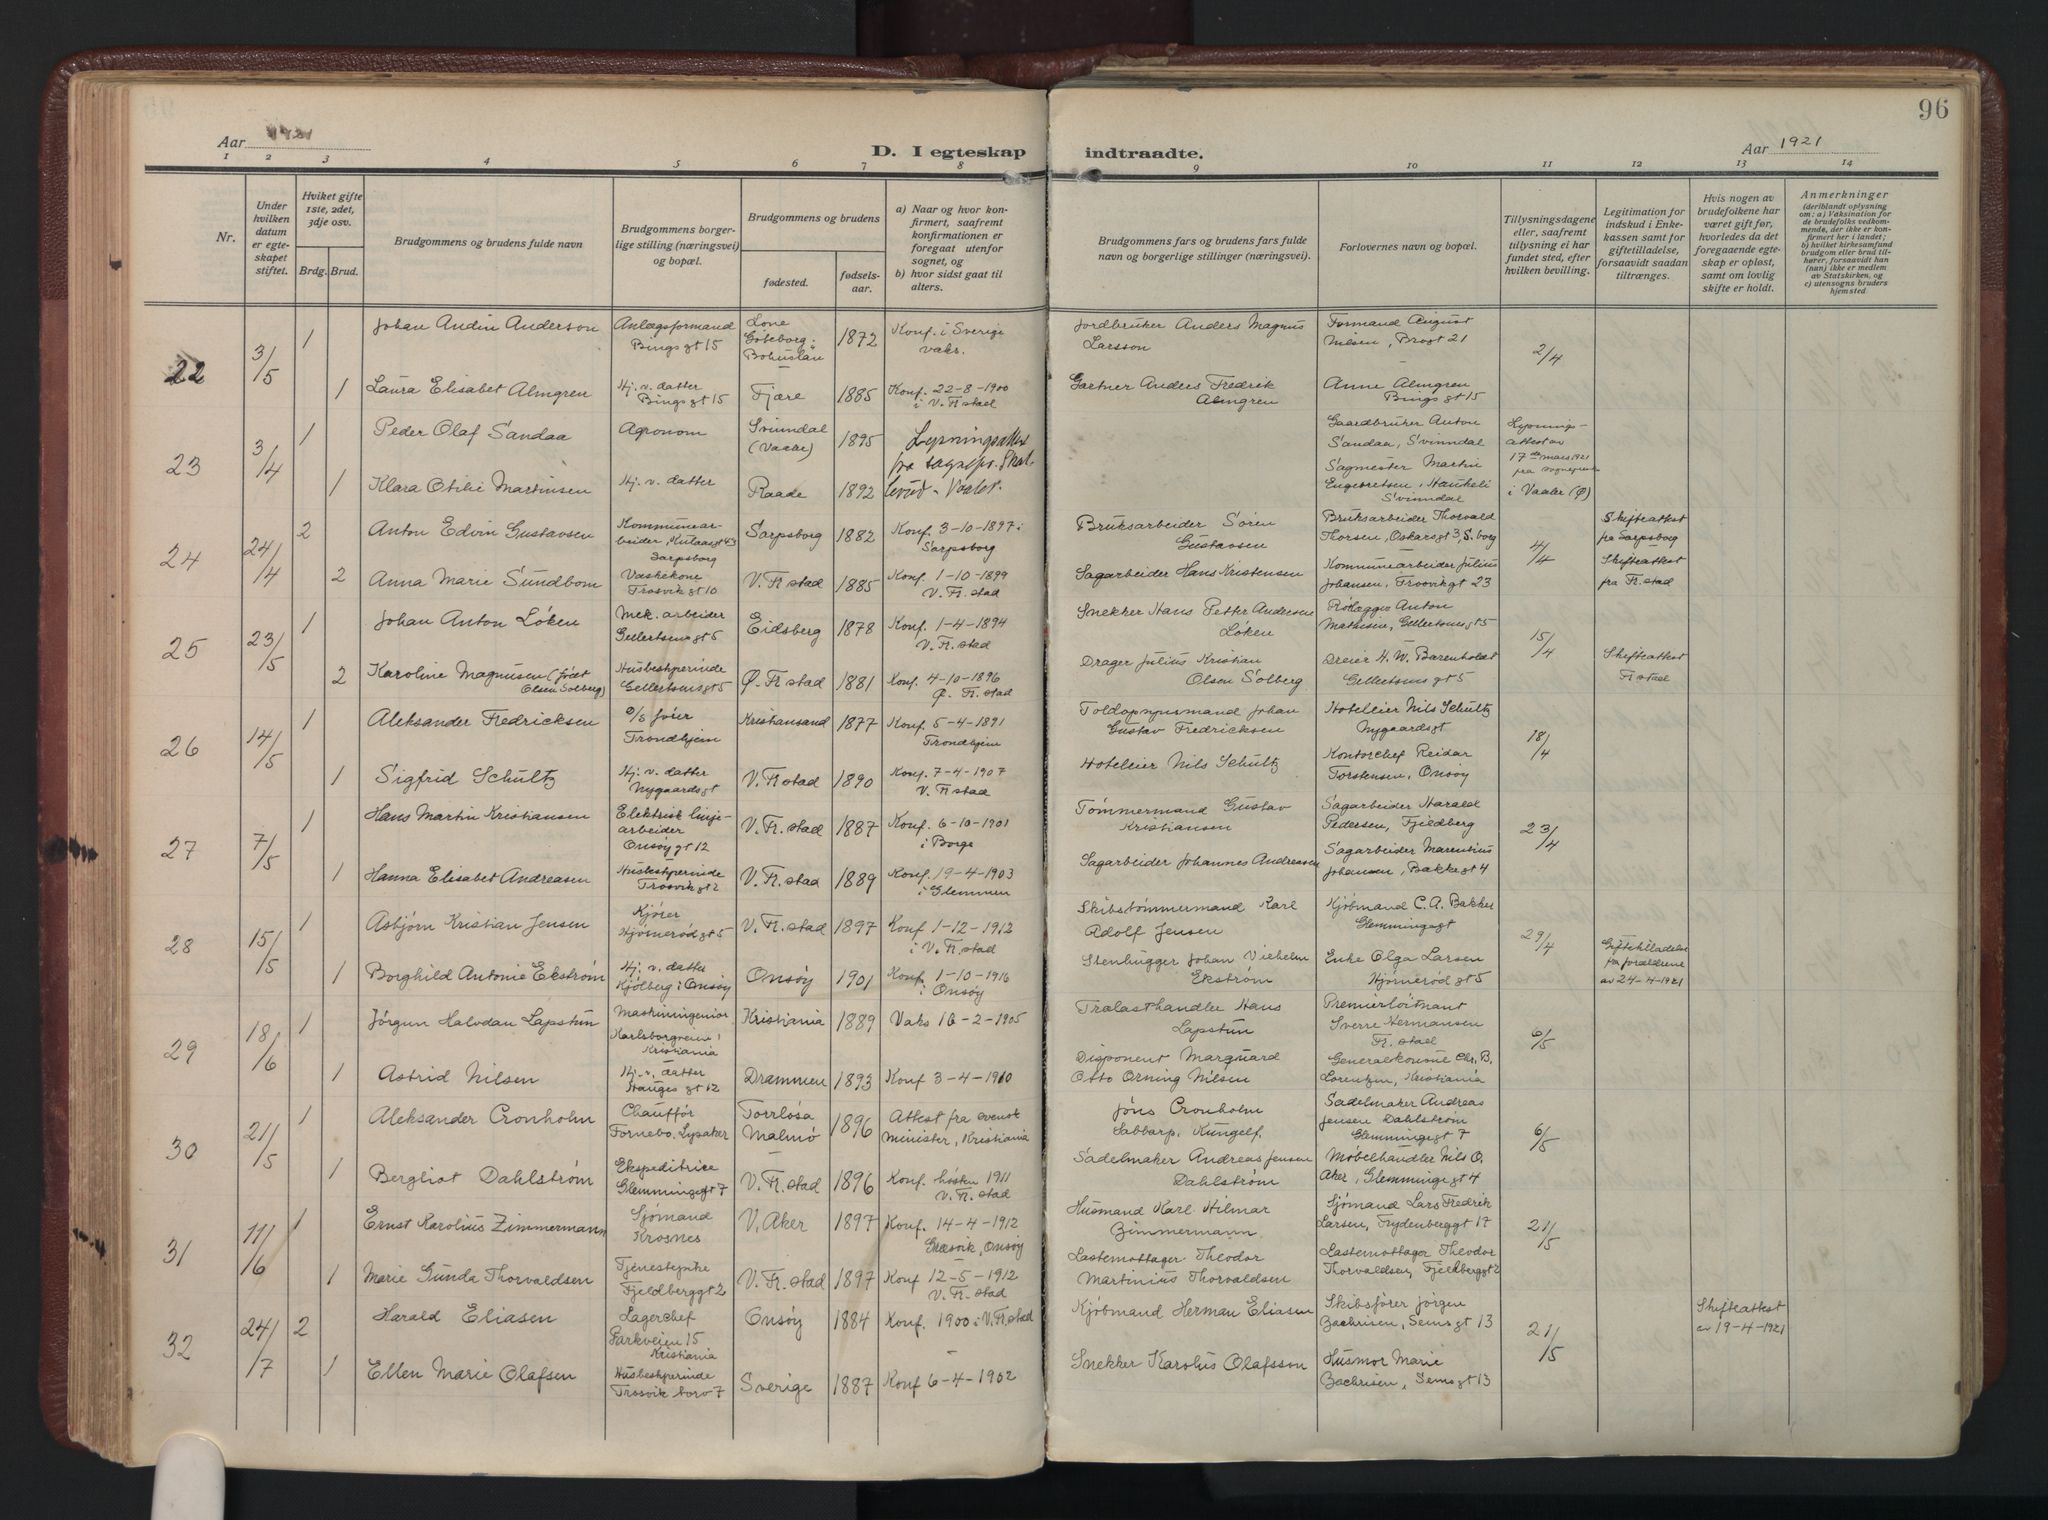 96
Aar 1921
D. I egteskap indtraadte.
Aar 1921
1 2 3 4 5 6 7 8 9 10 11 12 13 14
Nr.
Under hvilken datum er egteskapet stiftet.
Hviket gifte 1ste, 2det, 3dje osv.
Brdg. Brud.
Brudgommens og brudens fulde navn
Brudgommens borgerlige stilling (næringsvei) og bopæl.
Brudgommens og brudens
fødested.
fødselsaar.
a) Naar og hvor konfirmert, saafremt konfirmationen er foregaat utenfor sognet, og
b) hvor sidst gaat til alters.
Brudgommens fars og brudens fars fulde navn og borgerlige stillinger (næringsvei).
Forlovernes navn og bopæl.
Tillysningsdagene eller, saafremt tillysning ei har fundet sted, efter hvilken bevilling.
Legitimation for indskud i Enkekassen samt for giftetilladelse, forsaavidt saadan tiltrænges.
Hvis nogen av brudefolkene har været gift før, hvorledes da det foregaaende egteskap er opløst, samt om lovlig skifte er holdt.
Anmerkninger
(deriblandt oplysning om: a) Vaksination for de brudefolks vedkommende, der ikke er konfirmert her i landet; b) hvilket kirkesamfund brudgom eller brud tilhører, forsaavidt han (hun) ikke er medlem av Statskirken, og c) utensogns bruders hjemsted.
22 3/5
1 Johan Andin Anderson Anlægsformand Bingsgt 15 Göteborg Bohuslän 1872 Konf. i Sverige vaks. Jordbruker Anders Magnus Larsson Formand August Nilsen, Brogt 21 2/4
1 Laura Elisabet Almgren Hj. v. datter Bingsgt 15 Fjære 1885 Konf. 22-8-1900 i V. Fr.stad Gartner Anders Fredrik Almgren Anne Almgren Bingsgt 15
23 3/4
1 Peder Olaf Sandaa Agronom Svinndal (Vaaler) 1895 Lysningsattest fra Gaardbruker Anton Sandaa, Svinndal Lysningsattest av 17de mars 1921 fra i Vaaler (Ø)
1 Klara Otilie Martinsen Hj. v. datter Raade 1892 Sagmester Martin Engebretsen, Haukeli Svinndal
24 24/4
2 Anton Edvin Gustavsen Kommunearbeider, Kulaasgt 43 Sarpsborg Sarpsborg 1882 Konf. 3-10-1897 i Sarpsborg Bruksarbeider Søren Gustavsen Bruksarbeider Thorvald Thorsen, Oskarsgt 3, S.borg 4/4 Skifteattest fra Sarpsborg
2 Anna Marie Sundbom Vaskekone Trosvikgt 10 V. Fr.stad 1885 Konf. 1-10-1899 V. Fr.stad Sagarbeider Hans Kristensen Kommunearbeider Julius Johansen, Trosvikgt 23 Skifteattest fra Fr.stad
25 23/5
1 Johan Anton Løken Mek. arbeider Gellertsensgt 5 Eidsberg 1878 Konf. 1-4-1894 V. Fr.stad Snekker Hans Petter Andersen Løken Rørlægger Anton Mathisen, Gellertsensgt 5 15/4
2 Karoline Magnusen (født Olsen Solberg) Husbestyrerinde Gellertsensgt 5 Ø. Fr.stad 1881 Konf. 4-10-1896 Ø. Fr.stad Drager Julius Kristian Olsen Solberg Dreier H. W. Barenholdt Gellertsensgt 5 Skifteattest Fr.stad
26 14/5
1 Aleksander Fredricksen D/S fører Trondhjem Kristiansand 1877 Konf. 5-4-1891 Trondhjem Toldopsynsmand Johan Gustav Fredricksen Hoteleier Nils Schultz Nygaardsgt 18/4
1 Sigfrid Schultz Hj. v. datter Nygaardsgt V. Fr.stad 1890 Konf. 7-4-1907 V. Fr.stad Hoteleier Nils Schultz Kontorchef Reidar Torstensen, Onsøy
27 7/5
1 Hans Martin Kristiansen Elektrisk linjearbeider Onsøygt 12 V. Fr.stad 1887 Konf. 6-10-1901 i Borge Tømmermand Gustav Kristiansen Sagarbeider Harald Pedersen, Fjeldberg 23/4
1 Hanna Elisabet Andreasen Husbestyrerinde Trosvikgt 2 V. Fr.stad 1889 Konf. 19-4-1903 i Glemmen Sagarbeider Johannes Andreasen Sagarbeider Marentius Johansen, Bakkegt 4
28 15/5
1 Asbjørn Kristian Jensen Kjører Hjørnerødgt 5 V. Fr.stad 1897 Konf 1-12-1912 i V. Fr.stad Skibstømmermand Karl Adolf Jensen Kjøbmand C. A. Bakker Glemmingegt 29/4
1 Borghild Antonie Ekstrøm Hj. v. datter Kjølberg i Onsøy Onsøy 1901 Konf. 1-10-1916 i Onsøy Stenhugger Johan Vilhelm Ekstrøm Enke Olga Larsen Hjørnerødgt 5 Giftetilladelse fra forældrene av 24-4-1921
29 18/6
1 Jørgen Halvdan Lapstun Maskiningeniør Karlsborgveien 1 Kristiania Kristiania 1889 Vaks 16-2-1905 Trælasthandler Hans Lapstun Premierløitnant Sverre Hermansen Fr.stad 6/5
1 Astrid Nilsen Hj. v. datter Haugesgt 12 Drammen 1893 Konf 3-4-1910 Disponent Marquard Otto Orning Nilsen Generalkonsul Chr. B. Lorentzen, Kristiania
30 21/5
1 Aleksander Cronholm Chauffør Fornebo, Lysaker Torrlösa Malmö 1896 Attest fra svensk minister, Kristiania Jöns Cronholm Sabbarp, Kungelf. Sadelmaker Andreas Jensen Dahlstrøm Glemmingegt 7 6/5
1 Bergliot Dahlstrøm Ekspeditrice Glemmingegt 7 V. Fr.stad 1896 Konf. høsten 1911 V. Fr.stad Sadelmaker Andreas Jensen Dahlstrøm Møbelhandler Nils O. Aker, Glemmingegt 4
31 11/6
1 Ernst Karolius Zimmermann Sjømand Krosnes V. Aker 1897 Konf. 14-4-1912 Græsvik, Onsøy Husmand Karl Hilmar Zimmermann Sjømand Lars Fredrik Larsen, Frydenberggt 17 21/5
1 Marie Gunda Thorvaldsen Tjenestepike Fjeldberggt 2 V. Fr.stad 1897 Konf 12-5-1912 V. Fr.stad Lastemottager Theodor Martinius Thorvaldsen Lastemottager Theodor Thorvaldsen, Fjeldberggt 2
32 24/7
2 Harald Eliasen Lagerchef Parkveien 15 Kristiania Onsøy 1884 Konf. 1900 i V. Fr.stad Kjøbmand Herman Eliasen Skibsfører Jørgen Zachrisen, Semsgt 13 21/5 Skifteattest av 19-4-1921
1 Ellen Marie Olafsen Husbestyrerinde Trosvik torv 7 Sverige 1887 Konf 6-4-1902 Snekker Karolus Olafsson Husmor Marie Zachrisen, Semsgt 13